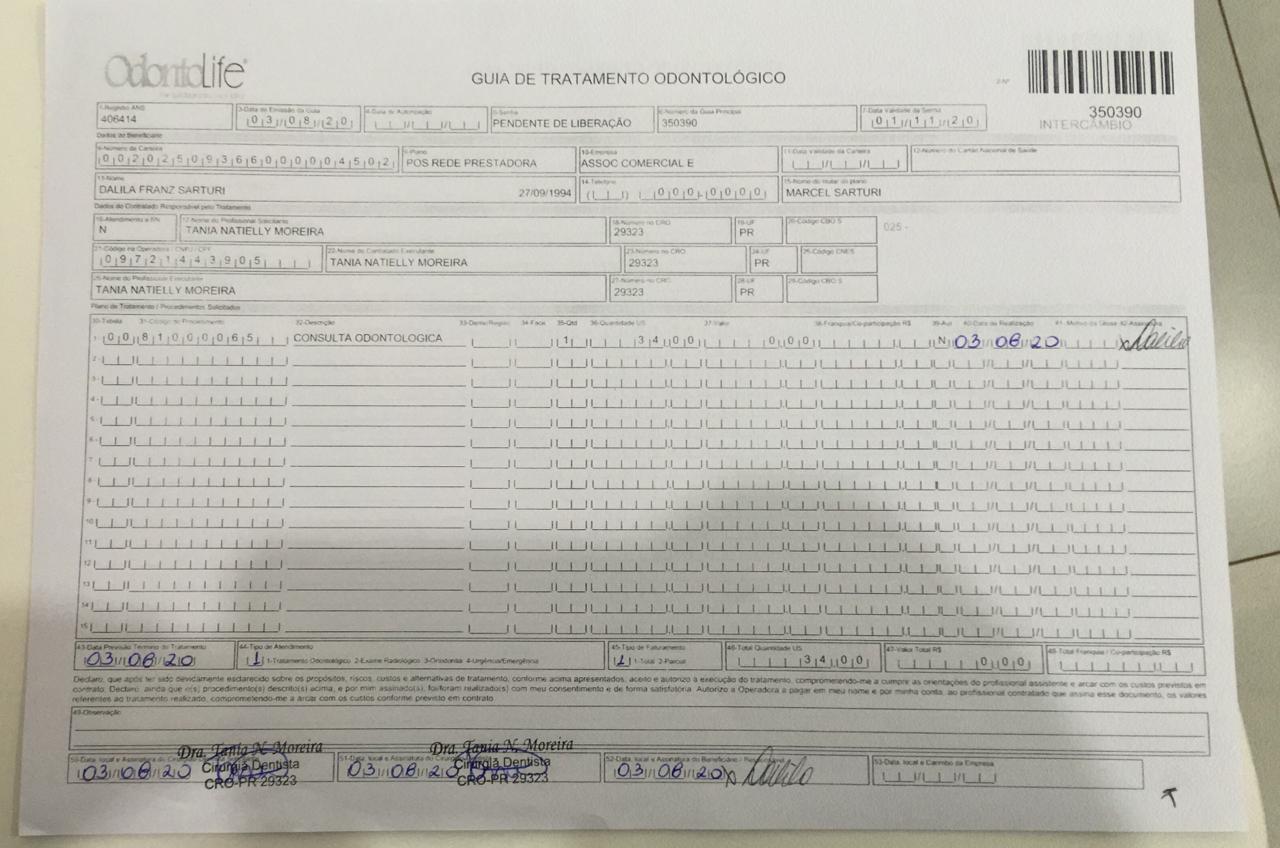 OdontoLife
GUIA DE TRATAMENTO ODONTOLÓGICO
2-Nº
350390
INTERCÂMBIO
1-Registro ANS 3-Data de Emissão da Guia 4-Data de Autorização 5-Senha 6-Número da Guia Principal 7-Data Validade da Senha
406414 03/08/20 PENDENTE DE LIBERAÇÃO 350390 01/11/20
Dados do Beneficiário
8-Número da Carteira 9-Plano 10-Empresa 11-Data Validade da Carteira 12-Número do Cartão Nacional de Saúde
00202509366000004502 POS REDE PRESTADORA ASSOC COMERCIAL E
13-Nome 14-Telefone 15-Nome do titular do plano
DALILA FRANZ SARTURI 27/09/1994 0000-0000 MARCEL SARTURI
Dados do Contratado Responsável pelo Tratamento
16-Atendimento a RN 17-Nome do Profissional Solicitante 18-Número no CRO 19-UF 20-Código CBO S
N TANIA NATIELLY MOREIRA 29323 PR 025 -
21-Código na Operadora / CNPJ / CPF 22-Nome do Contratado Executante 23-Número no CRO 24-UF 25-Código CNES
09721443905 TANIA NATIELLY MOREIRA 29323 PR
26-Nome do Profissional Executante 27-Número no CRO 28-UF 29-Código CBO S
TANIA NATIELLY MOREIRA 29323 PR
Plano de Tratamento / Procedimentos Solicitados
30-Tabela 31-Código do Procedimento 32-Descrição 33-Dente/Região 34-Face 35-Qtd 36-Quantidade US 37-Valor 38-Franquia/Co-participação R$ 39-Aut 40-Data de Realização 41-Motivo da Glosa 42-Assinatura
1- 00 81000065 CONSULTA ODONTOLOGICA 1 34,00 0,00 N 03 08 20 x Dalila
2-
3-
4-
5-
6-
7-
8-
9-
10-
11-
12-
13-
14-
15-
43-Data Previsão Término do Tratamento 44-Tipo de Atendimento 45-Tipo de Faturamento 46-Total Quantidade US 47-Valor Total R$ 48-Total Franquia / Co-participação R$
03/08/20 1 1-Tratamento Odontológico 2-Exame Radiológico 3-Ortodontia 4-Urgência/Emergência 1 1-Total 2-Parcial 34,00 0,00
Declaro, que após ter sido devidamente esclarecido sobre os propósitos, riscos, custos e alternativas de tratamento, conforme acima apresentados, aceito e autorizo a execução do tratamento, comprometendo-me a cumprir as orientações do profissional assistente e arcar com os custos previstos em
contrato. Declaro, ainda que o(s) procedimento(s) descrito(s) acima, e por mim assinado(s), foi/foram realizado(s) com meu consentimento e de forma satisfatória. Autorizo a Operadora a pagar em meu nome e por minha conta, ao profissional contratado que assina esse documento, os valores
referentes ao tratamento realizado, comprometendo-me a arcar com os custos conforme previsto em contrato.
49-Observação
Dra. Tania N. Moreira Dra. Tania N. Moreira
50-Data, local e Assinatura do 51-Data, local e Assinatura do 52-Data, local e Assinatura do Beneficiário / 53-Data, local e Carimbo da Empresa
03/08/20 Cirurgiã Dentista 03/08/20 Cirurgiã Dentista 03/08/20 x Dalila
CRO-PR 29323 CRO-PR 29323